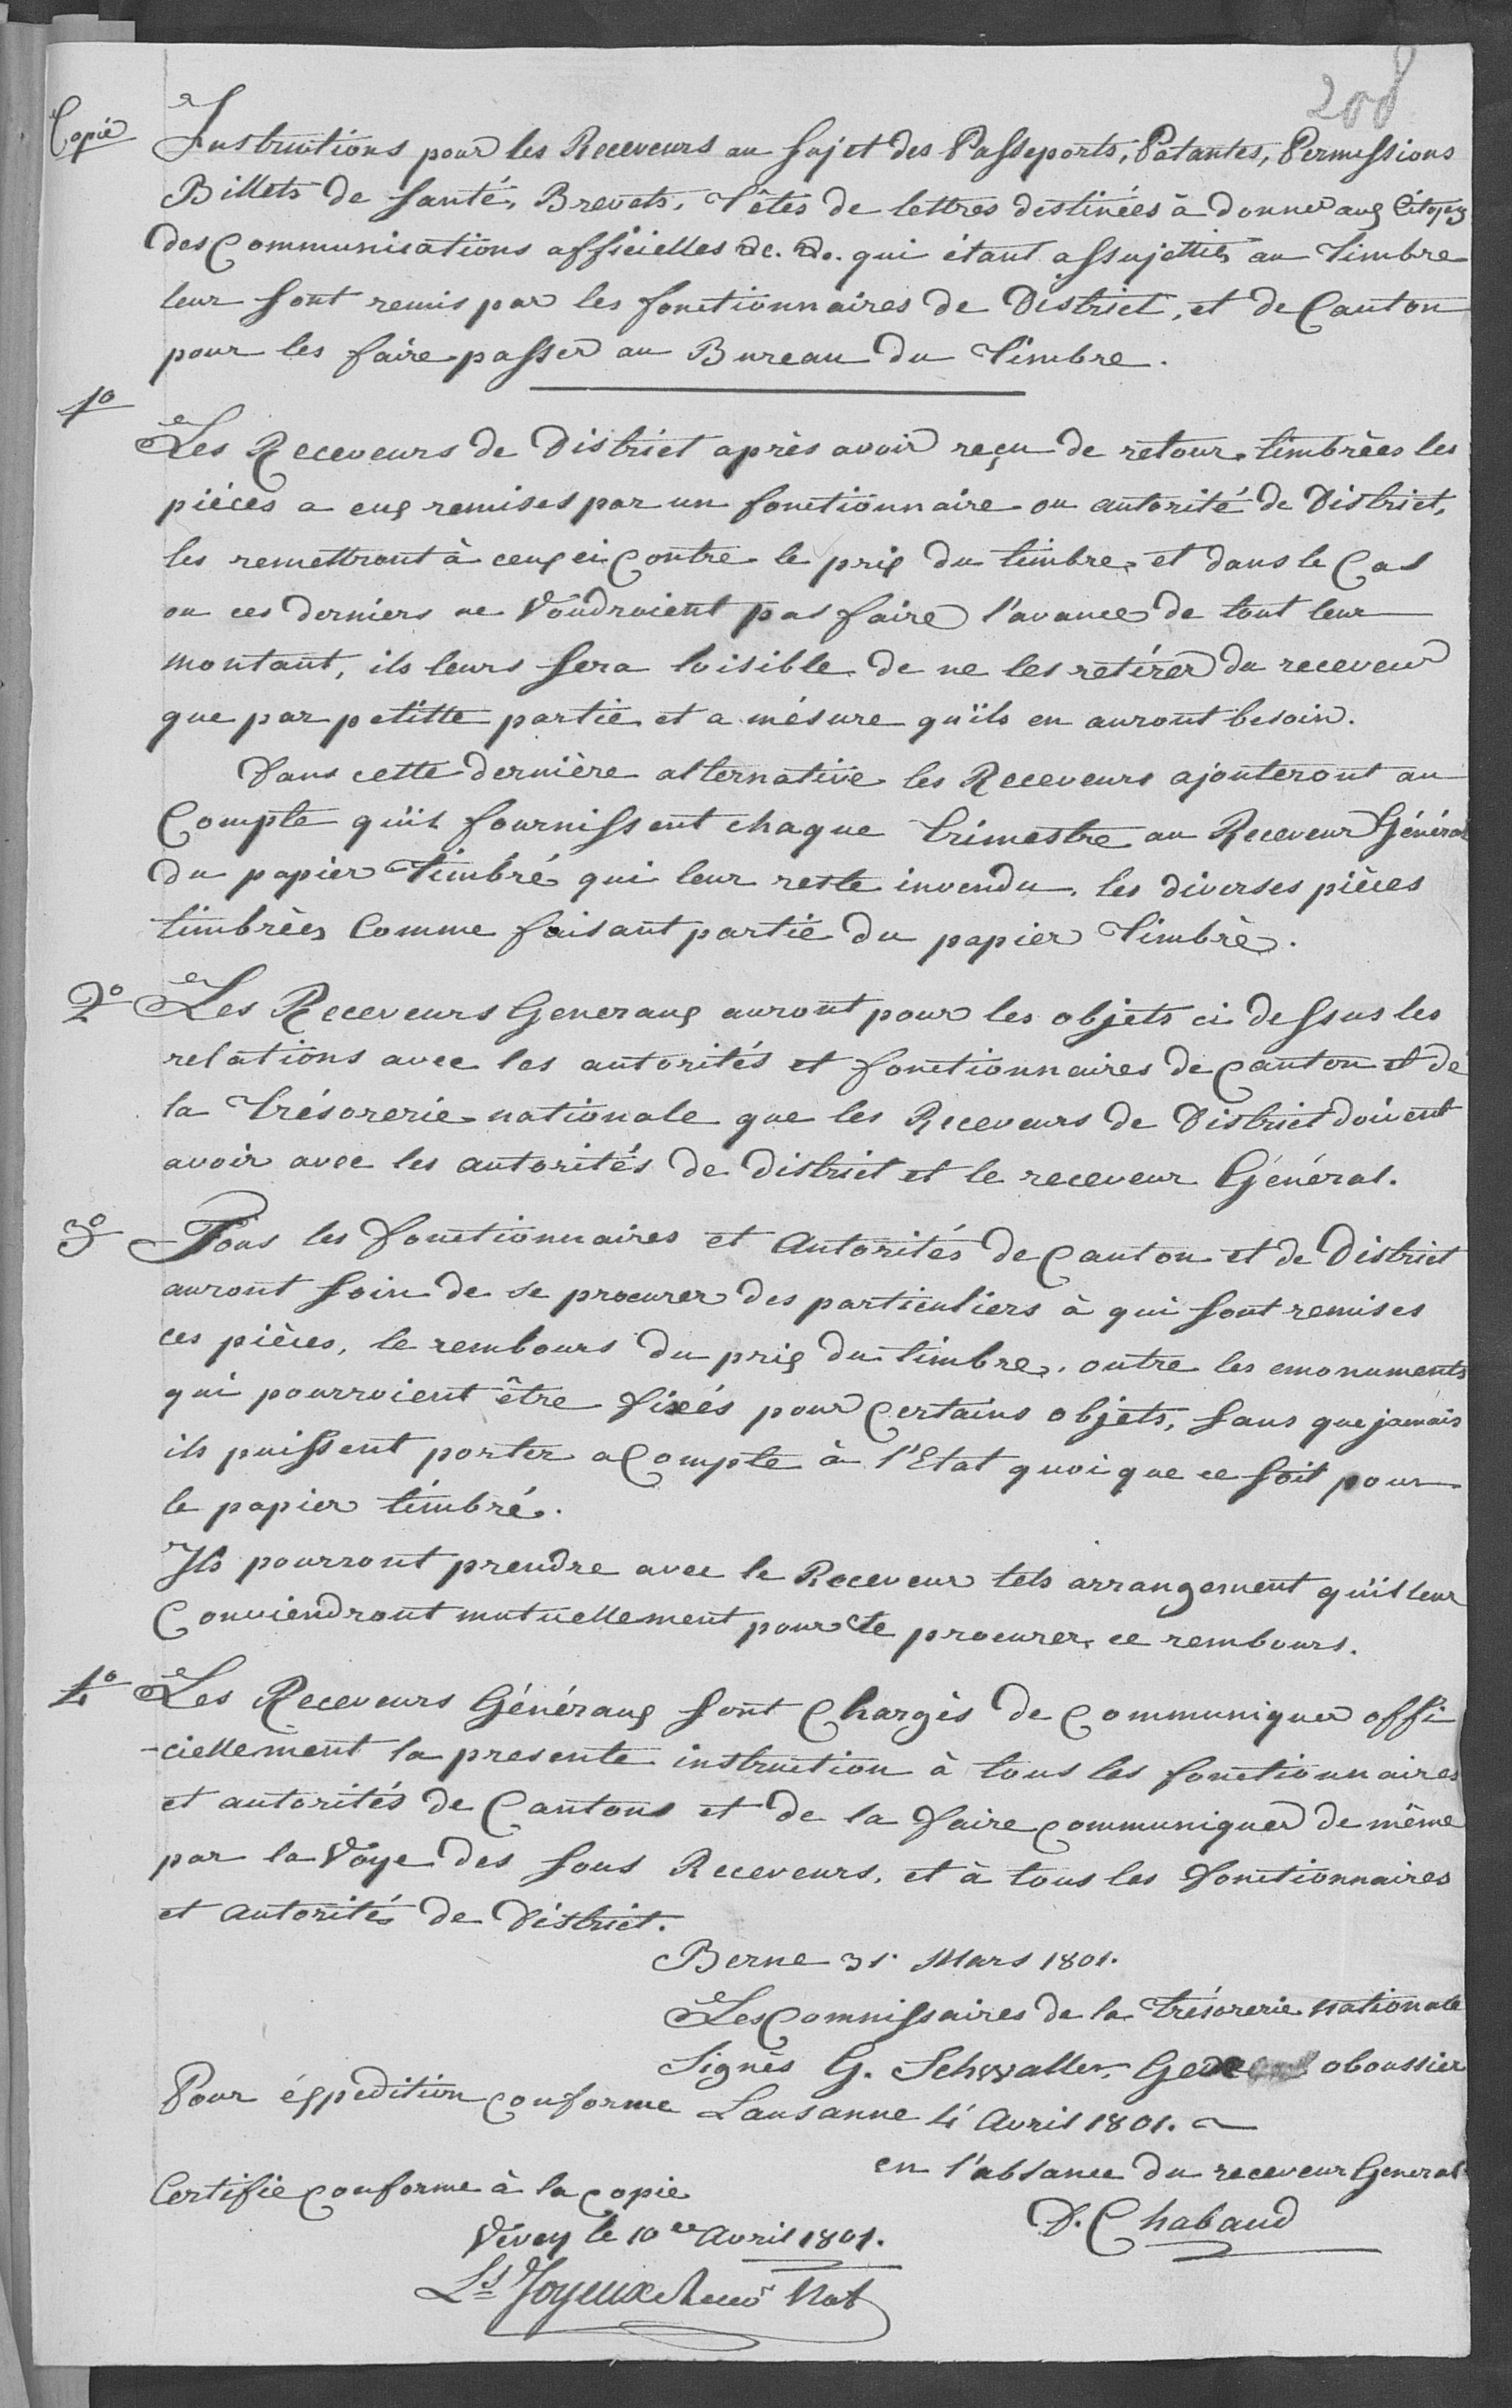 208
Copie
Instructions pour les Receveurs au sujet des Passeports, Patantes, Permissions
Billets de santé, Brevets, Têtes de lettres destinées à donner aux Citoyens
des Communications officielles &c. &c. qui étant assujettis au Timbre
leur sont remis par les fonctionnaires de District, et de Canton
pour les faire passer au Bureau du Timbre.
1º
Les Receveurs de District après avoir reçu de retour timbrèes les
piéces a eux remises par un fonctionnaire ou autorité de District,
les remettront à ceux ci Contre le prix du timbre, et dans le Cas
ou ces derniers ne Voudroient pas faire l'avance de tout leur
montant, ils leurs sera loisible de ne les retirer du receveur
que par petitte partie et a mésure qu'ils en auront besoin.
Dans cette dernière alternative les Receveurs ajouteront au
Compte qu'ils fournissent chaque trimestre au Receveur Général
du papier Timbré qui leur reste invendu, les diverses pièces
timbrèes Comme faisant partie du papier Timbrè.
2º Les Receveurs Generaux auront pour les objets ci dessus les
relations avec les autorités et fonctionnaires de Canton et de
la Trésorerie nationale que les Receveurs de District doivent
avoir avec les autorités de district et le receveur Général.
3º Tous les fonctionnaires et Autorités de Canton et de District
auront soin de se procurer des particuliers à qui sont remises
ces pièces, le rembours du prix du timbre, outre les emonuments
qui pourroient être fixés pour Certains objets, sans que jamais
ils puissent porter a Compte à l'Etat quoique ce soit pour
le papier timbré.
Ils pourront prendre avec le Receveur tels arrangement qu'il leur
Conviendront mutuellement pour se procurer ce rembours.
4º Les Receveurs Généraux sont Chargès de Communiquer offi
-ciellement la presente instruction à tous les fonctionnaires
et autorités de Cantons et de la faire Communiquer de même
par la Voye des sous Receveurs, et à tous les fonctionnaires
et Autorités de District.
Berne 31. Mars 1801.
Les Commissaires de la Trésorerie Nationale
Signès G. Schwaller, oboussier
Pour expedition Conforme Lausanne 4 Avril 1801.
en l'absance du receveur General
D. Chabaud
Certifie Conforme à la Copie
Vevey le 10er Avril 1801.
Ls Joyeux Recevr Nat